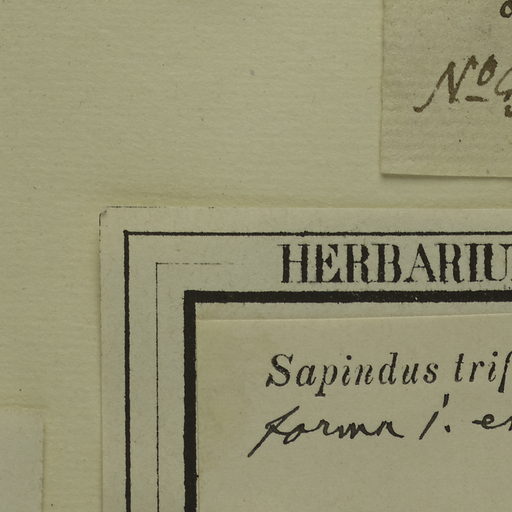 No
HERBARIU
Sapindus trif
forma 1.